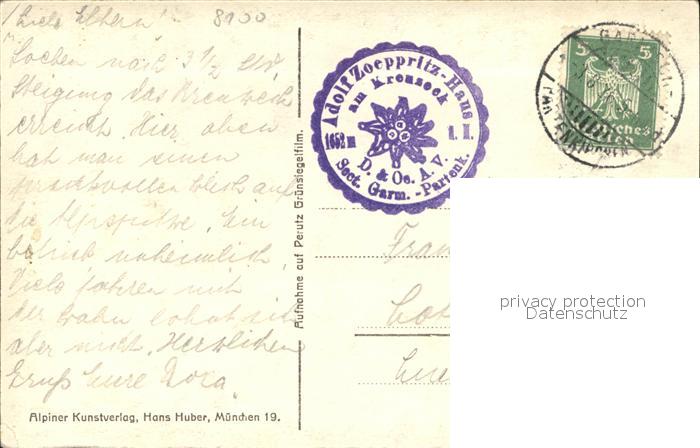 Liebe Eltern! 8100
Soeben nach 3 1/2 Std.
Steigung das Kreuzeck
erreicht. Hier oben
hat man einen
prachtvollen Blick auf
die Alpspitze. Ein
unheimlich.
Viele fahren mit
der Bahn lohnt sich
aber nicht. Herzlichen
Gruß Eure Rosa.
Alpiner Kunstverlag, Hans Huber, München 19.
Aufnahme auf Perutz Grünsiegelfilm.
Adolf Zoeppritz-Haus
am Kreuzeck
1652 m
D. & Oe. A. V.
Sect. Garm.-Partenk.
5 5
GAR
privacy protection
Datenschutz